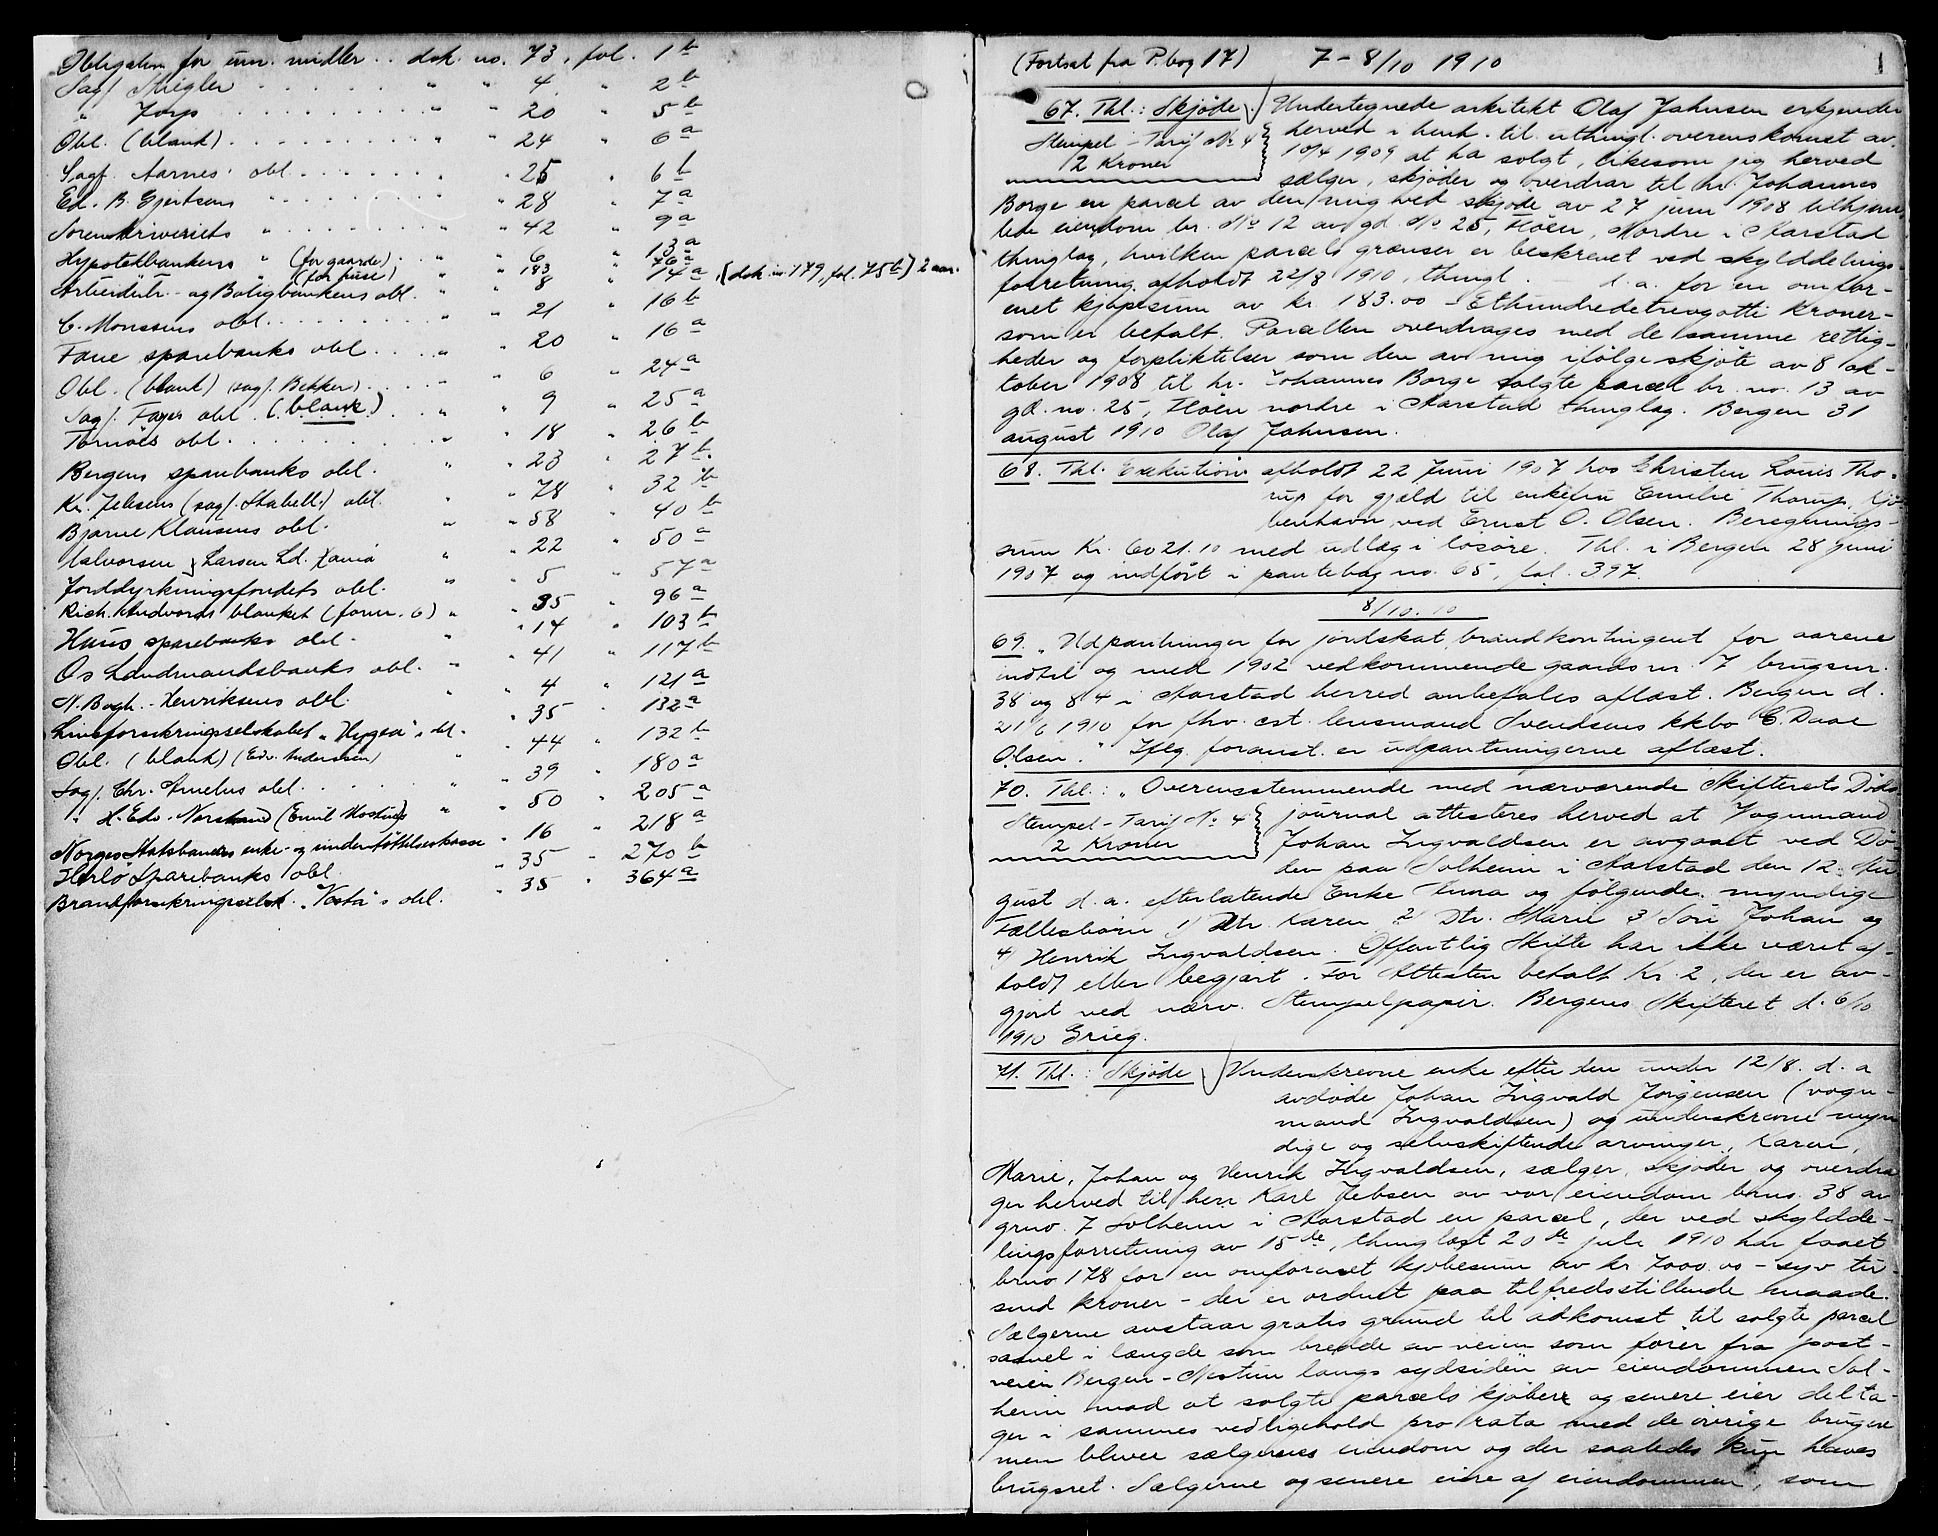 Obligation for um. midler . . dok. no. 73, fol. 1 b
Sagf. Stiegler . . . . . . " " 4 " 2 b
" Jorp . . . . . . " " 20 " 5 b
Obl. (blank) . . . . . . " " 24 " 6 a
Sagf. Aarnes' obl. . . . . . . " " 25 " 6 b
Ed. B. Gjertsens " . . . . . . " " 28 " 7 a
Sorenskriveriets " . . . . . . " " 42 " 9 a
Hypotekbankens " (for gaarde) . . " " 6 " 13 a
" (for huse) " 183 " 76 a
Arbeiderbr.- og Boligbankens obl. " " 8 " 14 a, (dok. nr. 179, fol. 75 b) 2 aar.
C. Monssens obl. . . . . . . " " 21 " 16 b
Fane sparebanks obl. . . . " " 20 " 16 a
Obl. (blank) (sagf. Bekker) . . . " " 6 " 24 a
Sagf. Fayes obl. (blank) . . " " 9 " 25 a
Tornöes obl. . . . . . . " " 18 " 26 b
Bergens sparebanks obl. " " 23 " 27 b.
Kr. Jebsens (sagf. Stabell.) obl. " " 78 " 32 b
Bjarne Klausens obl. " " 58 " 40 b
Halvorsen & Larsen Ld. " " 22 " 50 a
Jorddyrkningsfondets obl. " " 5 " 57 a
Rich. Andvords blanket (form. 6) " " 35 " 96 a
Haus sparebanks obl. " " 14 " 103 b
Os Landmandsbanks obl. " " 41 " 117 b
N. Bogh.-Henriksens obl. " " 4 " 121 a
Livsforsikringsselskabet "Hygea"s obl. " 35 " 132 a
Obl. (blank) (Edv. Anderssen) " " 44 " 132 b
Sagf. Chr. Amelns obl. . . . " " 39 " 180 a
" H. Edv. Norstrand (Emil Mostrup) " " 50 " 205 a
Norges Statsbaners enke- og understöttelseskasse " 16 " 218 a
Herlö Sparebanks obl. " 35 " 270 b
Brandforsikringselsk. "Vesta"s obl. " 35 " 364 a
(Fortsat fra P. bog 17) 7 - 8/10 1910 1
67. Thl.: Skjøde. Undertegnede arkitekt Olaf Jahnsen erkjender
Stempel - Tarif No. 4 herved i henh. til uthingl. overenskomst av
2 Kroner 10/4 1909 at ha solgt, likesom jeg herved
sælger, skjøder og overdrar til hr. Johannes
Borge en parcel av den mig ved skjøde av 27 juni 1908 tilhjem-
lede eiendom br. No 12 av gd. No 25, Flöen, Nordre i Aarstad
thinglag, hvilken parcels grænser er beskrevet ved skylddelings-
forretning afholdt 22/8 1910, thingl. d. a. for en omfor-
enet kjøpesum av kr. 183.00 - Ethundredetreogotti Kroner-
som er betalt. Parcellen overdrages med de samme rettig-
heder og forpliktelser som den av mig ifølge skjøte av 8 ok-
tober 1908 til hr. Johannes Borge solgte parcel br. no. 13 av
gd. no. 25, Flöen nordre i Aarstad thinglag. Bergen 31
august 1910 Olaf Jahnsen.
68. Thl. Exekution afholdt 22 juni 1907 hos Christen Louis Tho-
rup for gjæld til enkefru Emilie Thorup, Kjö-
benhavn ved Ernst O. Olsen. Beregnings-
sum Kr. 6021.10 med udlæg i lösöre. Thl. i Bergen 28 juni
1907 og indfört i pantebog no. 65, fol. 397.
8/10.10
69. "Udpantninger for jordskat, brandkontingent for aarene
indtil og med 1902 vedkommende gaardsnr. 7 brugsnr.
38 og 84 i Aarstad herred anbefales aflæst. Bergen d.
21/6 1910 for fhv. cst. lensmand Svendsens kkbo C. Daae
Olsen." Ifølg. foranst. er udpantningerne aflæst.
70. Thl.: "Overensstemmende med nærværende Skifterets Döds-
Stempel - Tarif No. 4 journal attesteres herved at Vognmand
2 Kroner Johan Ingvaldsen er avgaaet ved Dö-
den paa Solheim i Aarstad den 12. Au-
gust d. a. efterlatende Enke Anna og følgende myndige
Fællesbörn 1) Dtr. Karen 2) Dtr. Marie 3) Sön Johan og
4) Henrik Ingvaldsen. Offentlig Skifte har ikke været af-
holdt eller begjært. For Attesten betalt Kr. 2, der er av-
gjort ved nærv. Stempelpapir. Bergens Skifteret d. 6/10
1910 Grieg.
71. Thl.: Skjøde Underskrevne enke efter den under 12/8. d. a
avdøde Johan Ingvald Jørgensen (vogn-
mand Ingvaldsen) og underskrevne myn-
dige og selvskiftende arvinger, Karen,
Marie, Johan og Henrik Ingvaldsen, sælger, skjøder og overdra-
ger herved til herr Karl Jebsen av vor eiendom brno. 38 av
grno. 7 Solheim i Aarstad en parcel, der ved skyldde-
lingsforretning av 15de, thinglæst 20de juli 1910 har faaet
brno 178 for en omforenet kjøbesum av kr. 7000.00 - syv tu-
sind kroner - der er ordnet paa tilfredsstillende maade.
Sælgerne avstaar gratis grund til adkomst til solgte parcel
saavel i længde som bredde av veien som fører fra post-
veien Bergen - Nestun langs sydsiden av eiendommen Sol-
heim mod at solgte parcels kjøber og senere eier delta-
ger i sammes vedligehold pro rata med de øvrige brugere
men bliver sælgernes eiendom og der saaledes kun haves
brugsret. Sælgerne og senere eiere af eiendommen, som